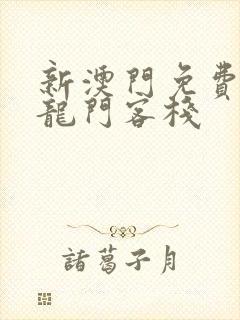 新澳門免費
龍門客棧
諸葛子月